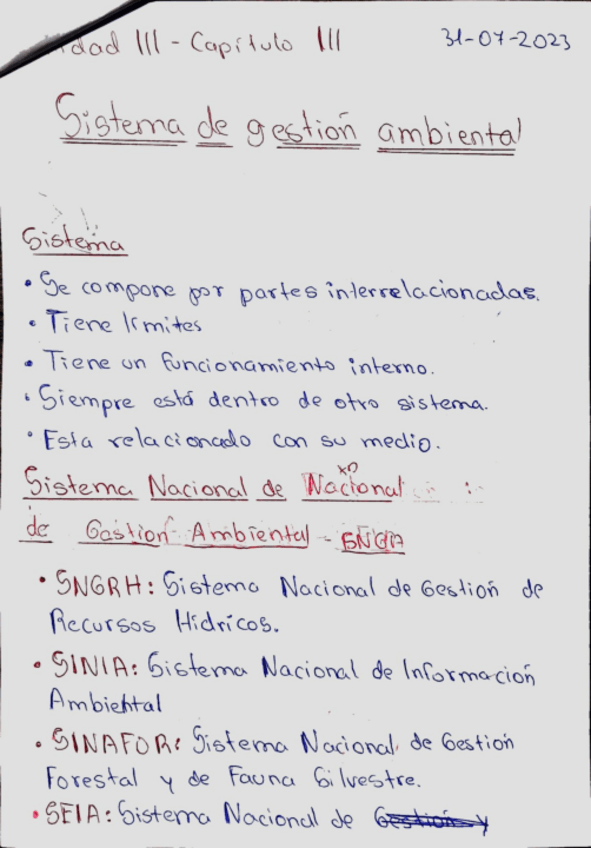 dad III - Capítulo III 31-07-2023
Sistema de gestión ambiental
Sistema
• Se compone por partes interrelacionadas.
• Tiene límites
• Tiene un funcionamiento interno.
• Siempre está dentro de otro sistema.
• Esta relacionado con su medio.
Sistema Nacional de Nacional
de Gestion Ambiental - SNGA
• SNGRH: Sistema Nacional de Gestión de
Recursos Hídricos.
• SINIA: Sistema Nacional de Información
Ambiental
• SINAFOR: Sistema Nacional de Gestión
Forestal y de Fauna Silvestre.
• SEIA: Sistema Nacional de Gestión y